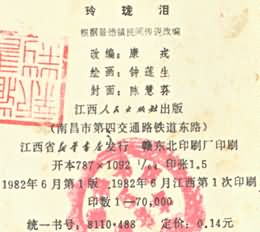 玲珑泪
根据景德镇民间传说改编
改编：康戎
绘画：钟莲生
封面：陈慧荪
江西人民出版社出版
（南昌市第四交通路铁道东路）
江西省新华书店发行 赣东北印刷厂印刷
开本787×1092 1/ 印张1.5
1982年6月第1版·1982年6月江西第1次印刷
印数1—70,000
统一书号：8110·488 定价：0.14元